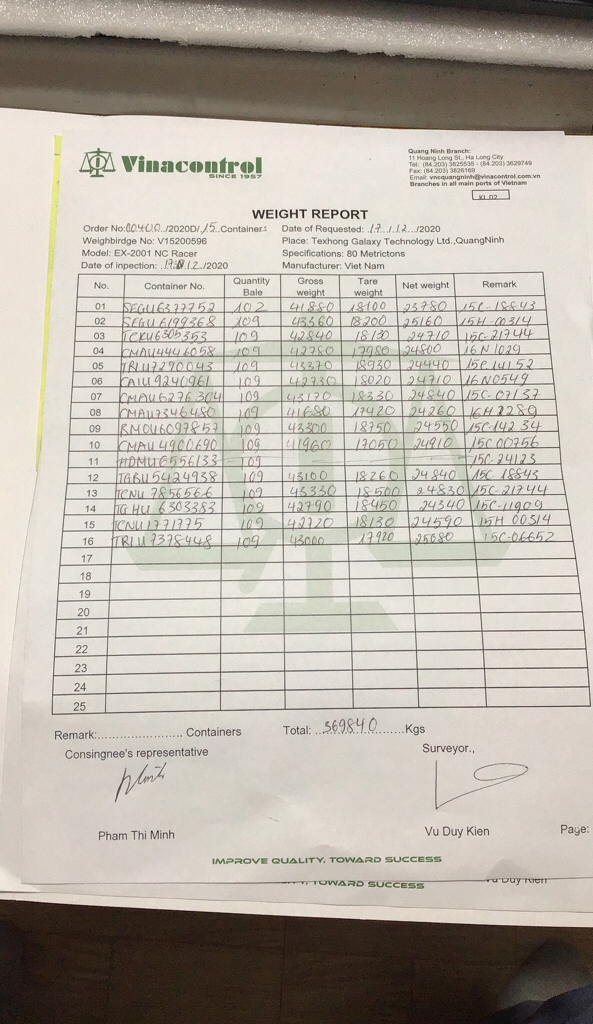 Vinacontrol
SINCE 1957
Quang Ninh Branch:
11 Hoang Long St., Ha Long City
Tel: (84.203) 3825535 - (84.203) 3629749
Fax: (84.203) 3826169
Email: vncquangninh@vinacontrol.com.vn
Branches in all main ports of Vietnam
KL 02
WEIGHT REPORT
Order No: 00400/2020D/15 Containers Date of Requested: 17/12/2020
Weighbirdge No: V15200596 Place: Texhong Galaxy Technology Ltd.,QuangNinh
Model: EX-2001 NC Racer Specifications: 80 Metrictons
Date of inpection: 17/12/2020 Manufacturer: Viet Nam
No. Container No. Quantity Bale Gross weight Tare weight Net weight Remark
01 SEGU6377752 102 41880 18100 23780 15C-18843
02 SEGU6199368 109 43360 18200 25160 15H-00314
03 TCKU6305353 109 42840 18130 24710 15C-21744
04 CMAU4446058 109 42780 17980 24800 16N1029
05 TRLU7290043 109 43370 18930 24440 15P14152
06 CAIU9240961 109 42730 18020 24710 16N0549
07 CMAU6276304 109 43170 18330 24840 15C-07137
08 CMAU7346480 109 41680 17420 24260 16H2289
09 BMOU6097857 109 43300 18750 24550 15C-14234
10 CMAU4900690 109 41960 17050 24910 15C00756
11 HDMU6556133 15C-24123
12 TGBU5424938 109 43100 18260 24840 15C-18843
13 TCNU7856566 109 43330 18500 24830 15C-21744
14 TGHU6303383 109 42790 18450 24340 15C-11909
15 TCNU1771775 109 42720 18130 24590 15H00314
16 TRLU7378448 109 43000 17920 25080 15C-06652
17
18
19
20
21
22
23
24
25
Remark:........................ Containers Total: ...369840.......Kgs
Consingnee's representative Surveyor.,
Pham Thi Minh Vu Duy Kien Page:
IMPROVE QUALITY, TOWARD SUCCESS
TOWARD SUCCESS Vu Duy Kien